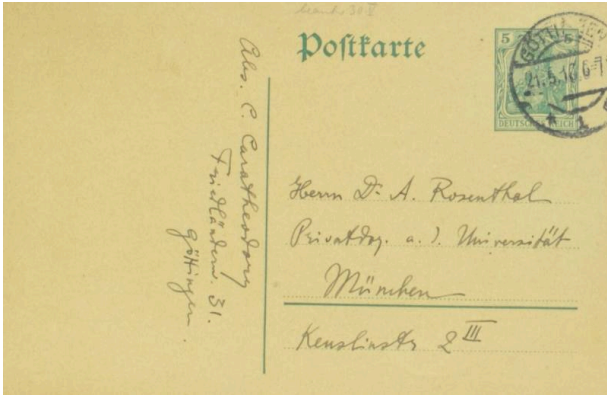 Postkarte
5
GÖTTINGEN
21.5.16.6-7
DEUTSCHES REICH
1
Abs. C. Caratheodory
Friedländerw. 31.
Göttingen.
Herrn Dr. A. Rosenthal
Privatdoz. a. d. Universität
München
2 III